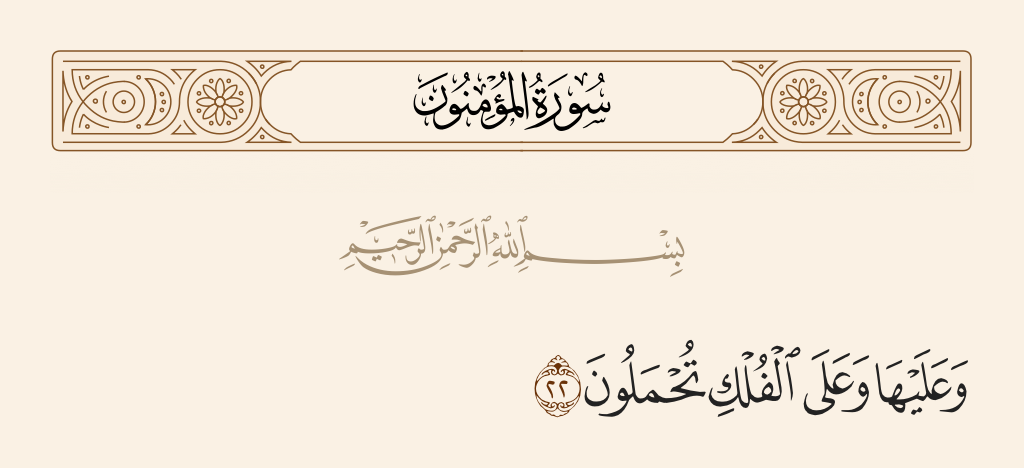 سُورَةُ المُؤْمِنُونَ
بِسْمِ ٱللَّهِ ٱلرَّحْمَٰنِ ٱلرَّحِيمِ
وَعَلَيْهَا وَعَلَى ٱلْفُلْكِ تُحْمَلُونَ ٢٢